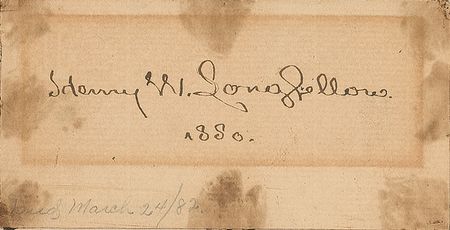 Henry W. Longfellow.
1880.
Died March 24/82.